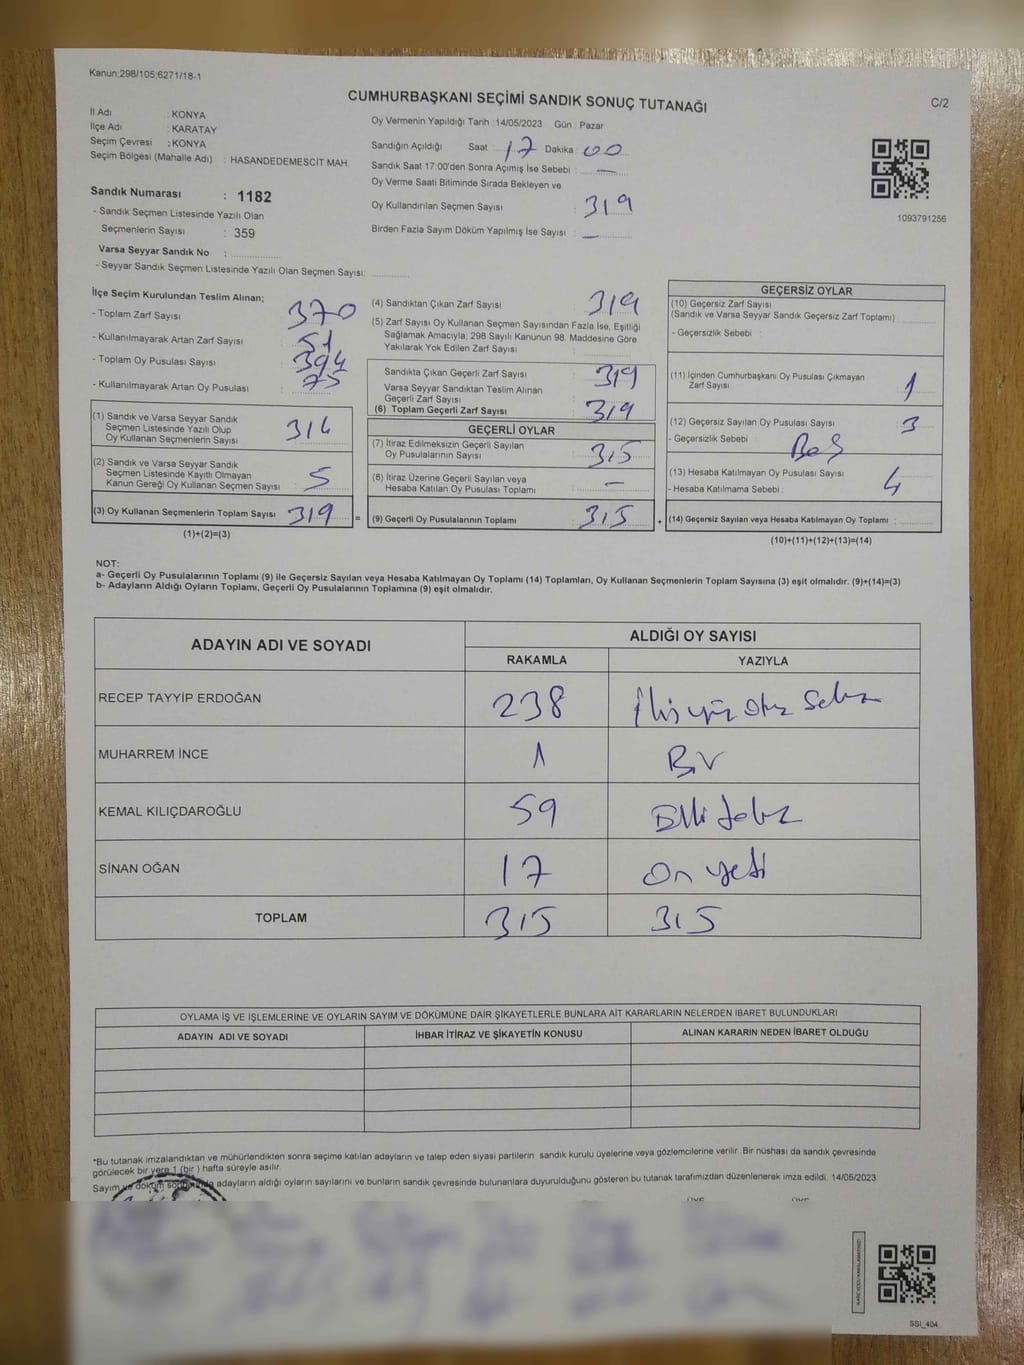 Kanun;298/105;6271/18-1
CUMHURBAŞKANI SEÇİMİ SANDIK SONUÇ TUTANAĞI
C/2
İl Adı : KONYA
İlçe Adı : KARATAY
Seçim Çevresi : KONYA
Seçim Bölgesi (Mahalle Adı) : HASANDEDEMESCİT MAH.
Sandık Numarası : 1182
- Sandık Seçmen Listesinde Yazılı Olan
Seçmenlerin Sayısı : 359
Varsa Seyyar Sandık No :
- Seyyar Sandık Seçmen Listesinde Yazılı Olan Seçmen Sayısı:
Oy Vermenin Yapıldığı Tarih : 14/05/2023 Gün : Pazar
Sandığın Açıldığı Saat : 17 Dakika : 00
Sandık Saat 17:00'den Sonra Açımış İse Sebebi : —
Oy Verme Saati Bitiminde Sırada Bekleyen ve
Oy Kullandırılan Seçmen Sayısı : 319
Birden Fazla Sayım Döküm Yapılmış İse Sayısı : —
1093791256
İlçe Seçim Kurulundan Teslim Alınan;
- Toplam Zarf Sayısı : 370
- Kullanılmayarak Artan Zarf Sayısı : 51
- Toplam Oy Pusulası Sayısı : 394
- Kullanılmayarak Artan Oy Pusulası : 75
(1) Sandık ve Varsa Seyyar Sandık
Seçmen Listesinde Yazılı Olup
Oy Kullanan Seçmenlerin Sayısı 314
(2) Sandık ve Varsa Seyyar Sandık
Seçmen Listesinde Kayıtlı Olmayan
Kanun Gereği Oy Kullanan Seçmen Sayısı 5
(3) Oy Kullanan Seçmenlerin Toplam Sayısı 319 =
(1)+(2)=(3)
(4) Sandıktan Çıkan Zarf Sayısı : 319
(5) Zarf Sayısı Oy Kullanan Seçmen Sayısından Fazla İse, Eşitliği
Sağlamak Amacıyla; 298 Sayılı Kanunun 98. Maddesine Göre
Yakılarak Yok Edilen Zarf Sayısı :
Sandıkta Çıkan Geçerli Zarf Sayısı : 319
Varsa Seyyar Sandıktan Teslim Alınan
Geçerli Zarf Sayısı :
(6) Toplam Geçerli Zarf Sayısı : 319
GEÇERLİ OYLAR
(7) İtiraz Edilmeksizin Geçerli Sayılan
Oy Pusulalarının Sayısı : 315
(8) İtiraz Üzerine Geçerli Sayılan veya
Hesaba Katılan Oy Pusulası Toplamı : —
(9) Geçerli Oy Pusulalarının Toplamı : 315 +
GEÇERSİZ OYLAR
(10) Geçersiz Zarf Sayısı
(Sandık ve Varsa Seyyar Sandık Geçersiz Zarf Toplamı) :
- Geçersizlik Sebebi :
(11) İçinden Cumhurbaşkanı Oy Pusulası Çıkmayan
Zarf Sayısı : 1
(12) Geçersiz Sayılan Oy Pusulası Sayısı : 3
- Geçersizlik Sebebi : Boş
(13) Hesaba Katılmayan Oy Pusulası Sayısı : 4
- Hesaba Katılmama Sebebi :
(14) Geçersiz Sayılan veya Hesaba Katılmayan Oy Toplamı :
(10)+(11)+(12)+(13)=(14)
NOT:
a- Geçerli Oy Pusulalarının Toplamı (9) ile Geçersiz Sayılan veya Hesaba Katılmayan Oy Toplamı (14) Toplamları, Oy Kullanan Seçmenlerin Toplam Sayısına (3) eşit olmalıdır. (9)+(14)=(3)
b- Adayların Aldığı Oyların Toplamı, Geçerli Oy Pusulalarının Toplamına (9) eşit olmalıdır.
ADAYIN ADI VE SOYADI ALDIĞI OY SAYISI
RAKAMLA YAZIYLA
RECEP TAYYİP ERDOĞAN 238 İkiyüz otuz Sekiz
MUHARREM İNCE 1 Bir
KEMAL KILIÇDAROĞLU 59 Elli dokuz
SİNAN OĞAN 17 On yedi
TOPLAM 315 315
OYLAMA İŞ VE İŞLEMLERİNE VE OYLARIN SAYIM VE DÖKÜMÜNE DAİR ŞİKAYETLERLE BUNLARA AİT KARARLARIN NELERDEN İBARET BULUNDUKLARI
ADAYIN ADI VE SOYADI İHBAR İTİRAZ VE ŞİKAYETİN KONUSU ALINAN KARARIN NEDEN İBARET OLDUĞU
*Bu tutanak imzalandıktan ve mühürlendikten sonra seçime katılan adayların ve talep eden siyasi partilerin sandık kurulu üyelerine veya gözlemcilerine verilir. Bir nüshası da sandık çevresinde
görülecek bir yere 1 (bir) hafta süreyle asılır.
Sayım ve döküm adayların aldığı oyların sayılarını ve bunların sandık çevresinde bulunanlara duyurulduğunu gösteren bu tutanak tarafımızdan düzenlenerek imza edildi. 14/05/2023
ÜYE ÜYE
SSI_404